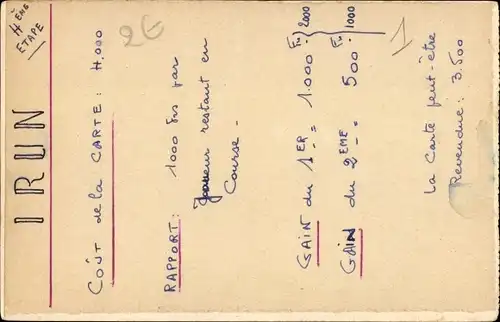 4ÈME
ETAPE
IRUN
2€
COÛT de la CARTE : 4.000
RAPPORT : 1000 Frs par
Joueur restant en
Course -
GAIN du 1ER -"- 1.000 Frs } 2000
GAIN du 2EME -"- 500 Frs } 1000
La Carte peut-être
Revendue : 3.500